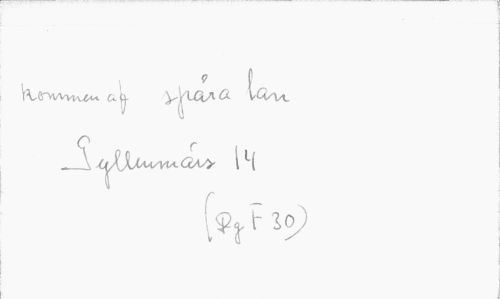 kommen af spåra lan
Gyllenmärs 14
(Rg F 30)